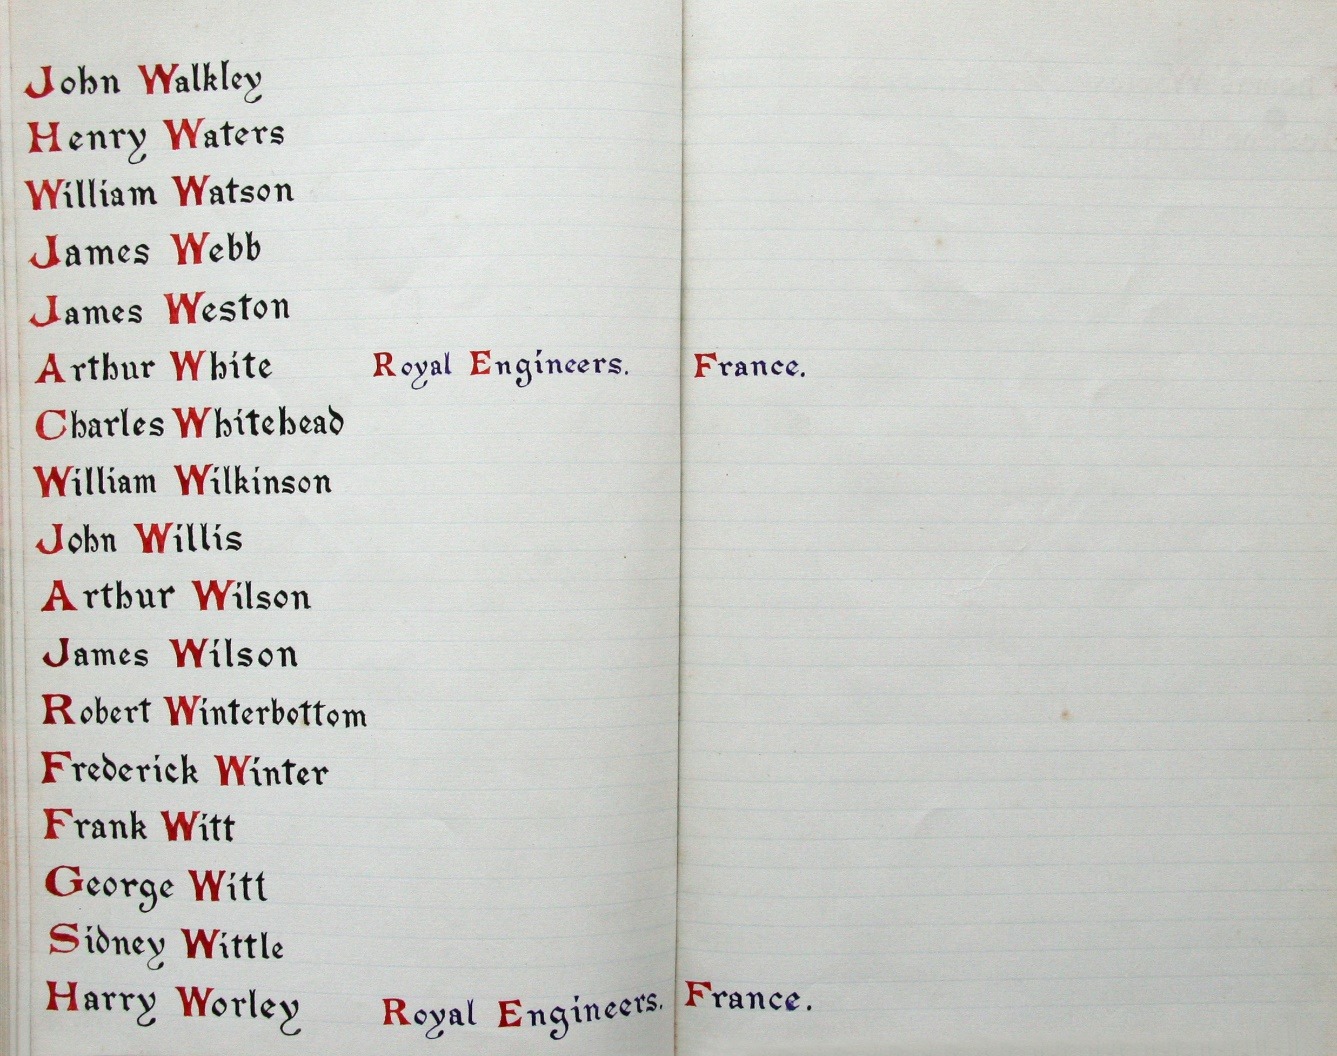 John Walkley
Henry Waters
William Watson
James Webb
James Weston
Arthur White Royal Engineers. France.
Charles Whitehead
William Wilkinson
John Willis
Arthur Wilson
James Wilson
Robert Winterbottom
Frederick Winter
Frank Witt
George Witt
Sidney Wittle
Harry Worley Royal Engineers. France.